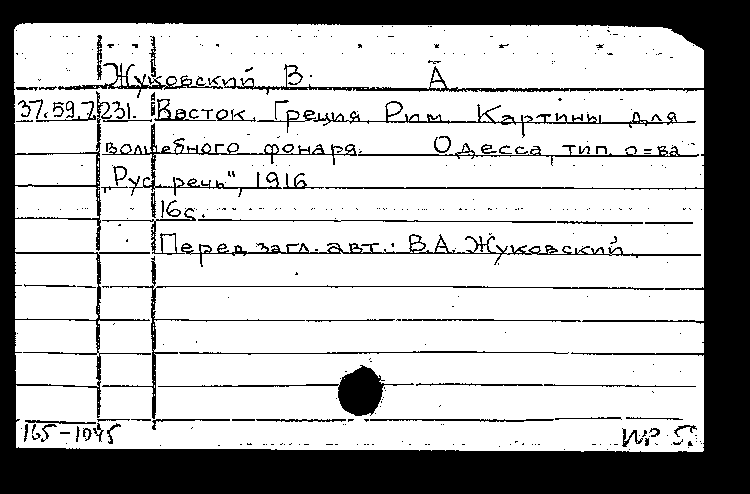 Жуковский, В. А
37.59.7.231. Восток. Греция. Рим. Картины для
волшебного фонаря. Одесса, тип. о=ва
„Рус. речь", 1916
16с.
Перед загл. авт.: В.А. Жуковский.
165-1045